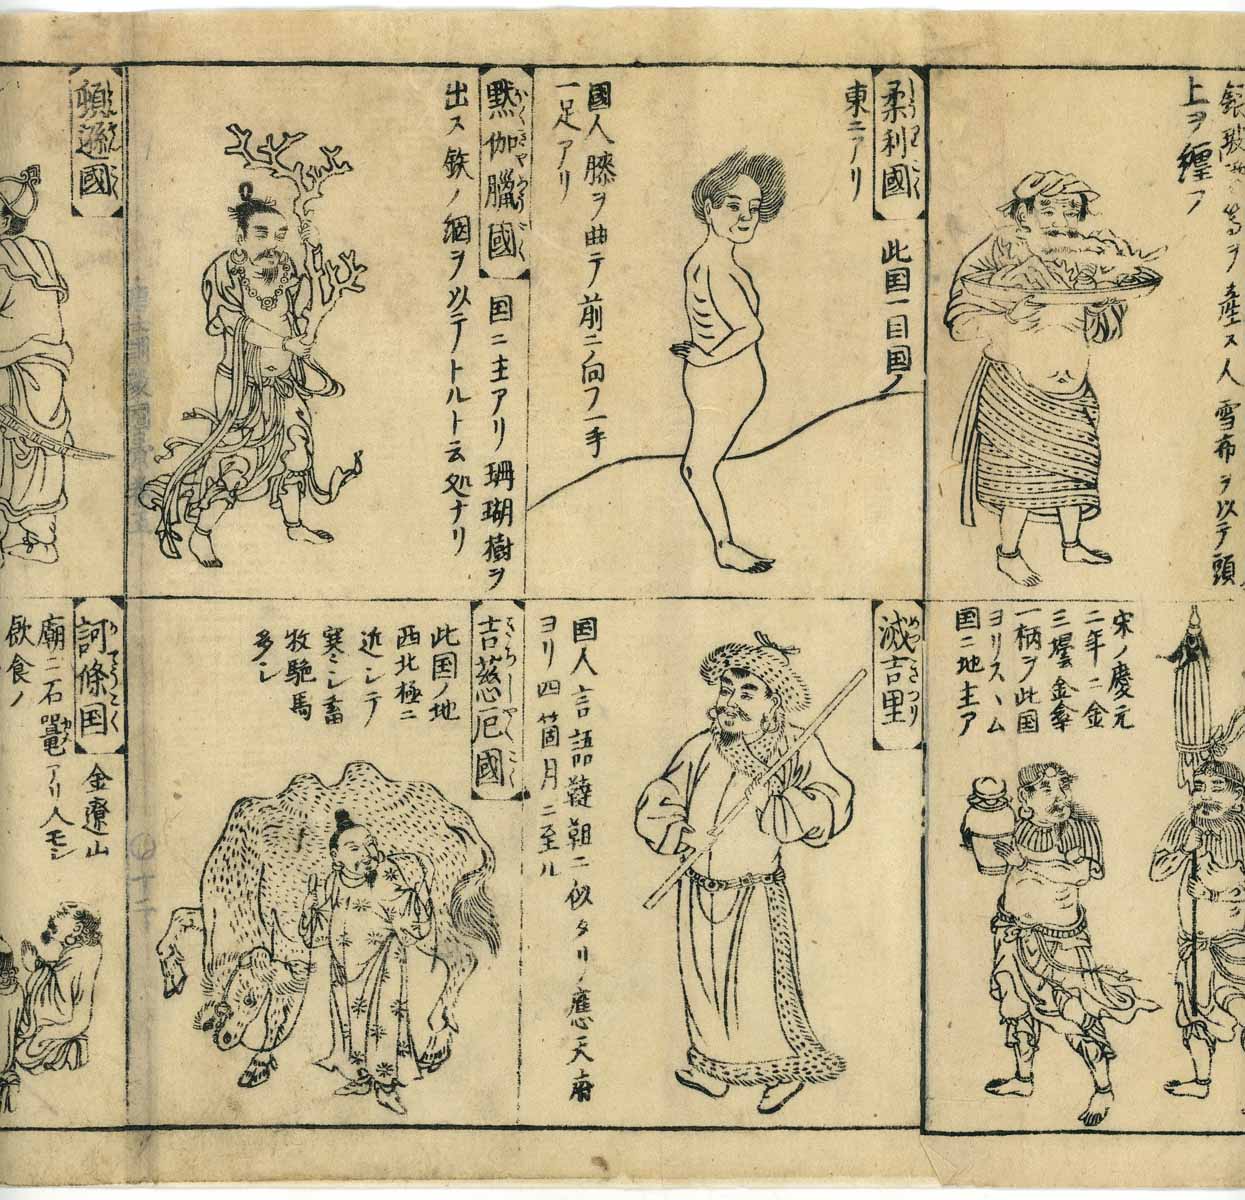 銀
等ヲ産ス人雪布ヲ以テ頭
上ヲ纏フ
柔利國
此国一目国ノ
東ニアリ
國人膝ヲ曲テ前ニ向フ一手
一足アリ
黙伽臘國
国ニ主アリ珊瑚樹ヲ
出ス鉄ノ網ヲ以テトルト云処ナリ
頓遜國
宋ノ慶元
二年ニ金
三壜金傘
一柄ヲ此国
ヨリスヽム
国ニ地主ア
滅吉里
めつきつり
国人言語韃靼ニ似タリ應天府
ヨリ四箇月ニ至ル
吉慈厄國
きちしやくこく
此国ノ地
西北極ニ
近シテ
寒シ畜
牧駝馬
多シ
訶條国
かてうこく
金遼山
廟ニ石鼉アリ人モシ
飲食ノ
十二